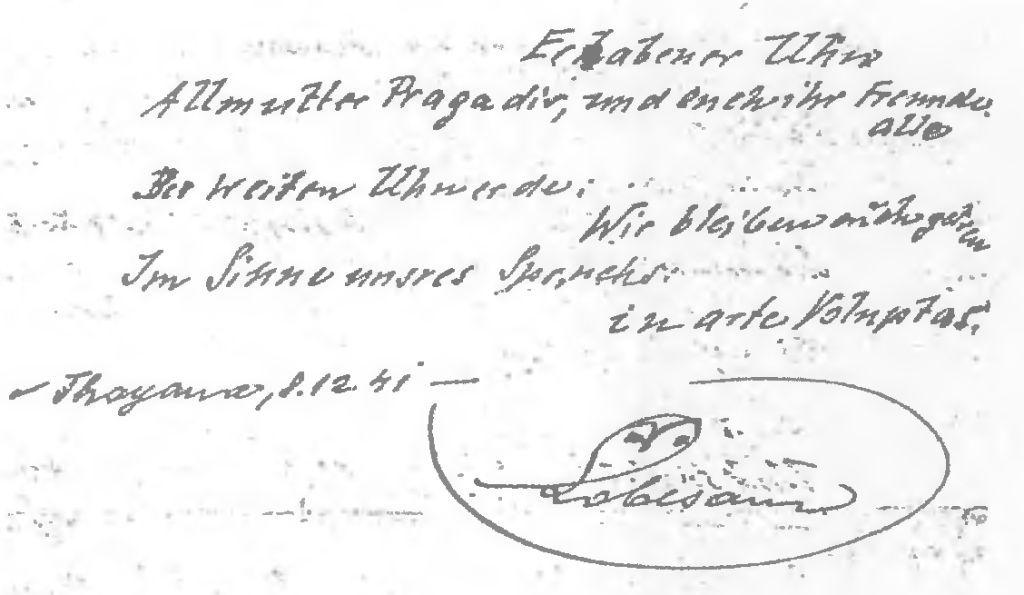 Erhabener Uhu
Allmutter Praga dir, und euch ihr Freunde
alle
Der weiten Uhuerde:
Wir bleiben euch getreu
Im Sinne unsres Spruchs:
in arte Voluptas.
Troyanu, 8.12.41 —
Lobesam